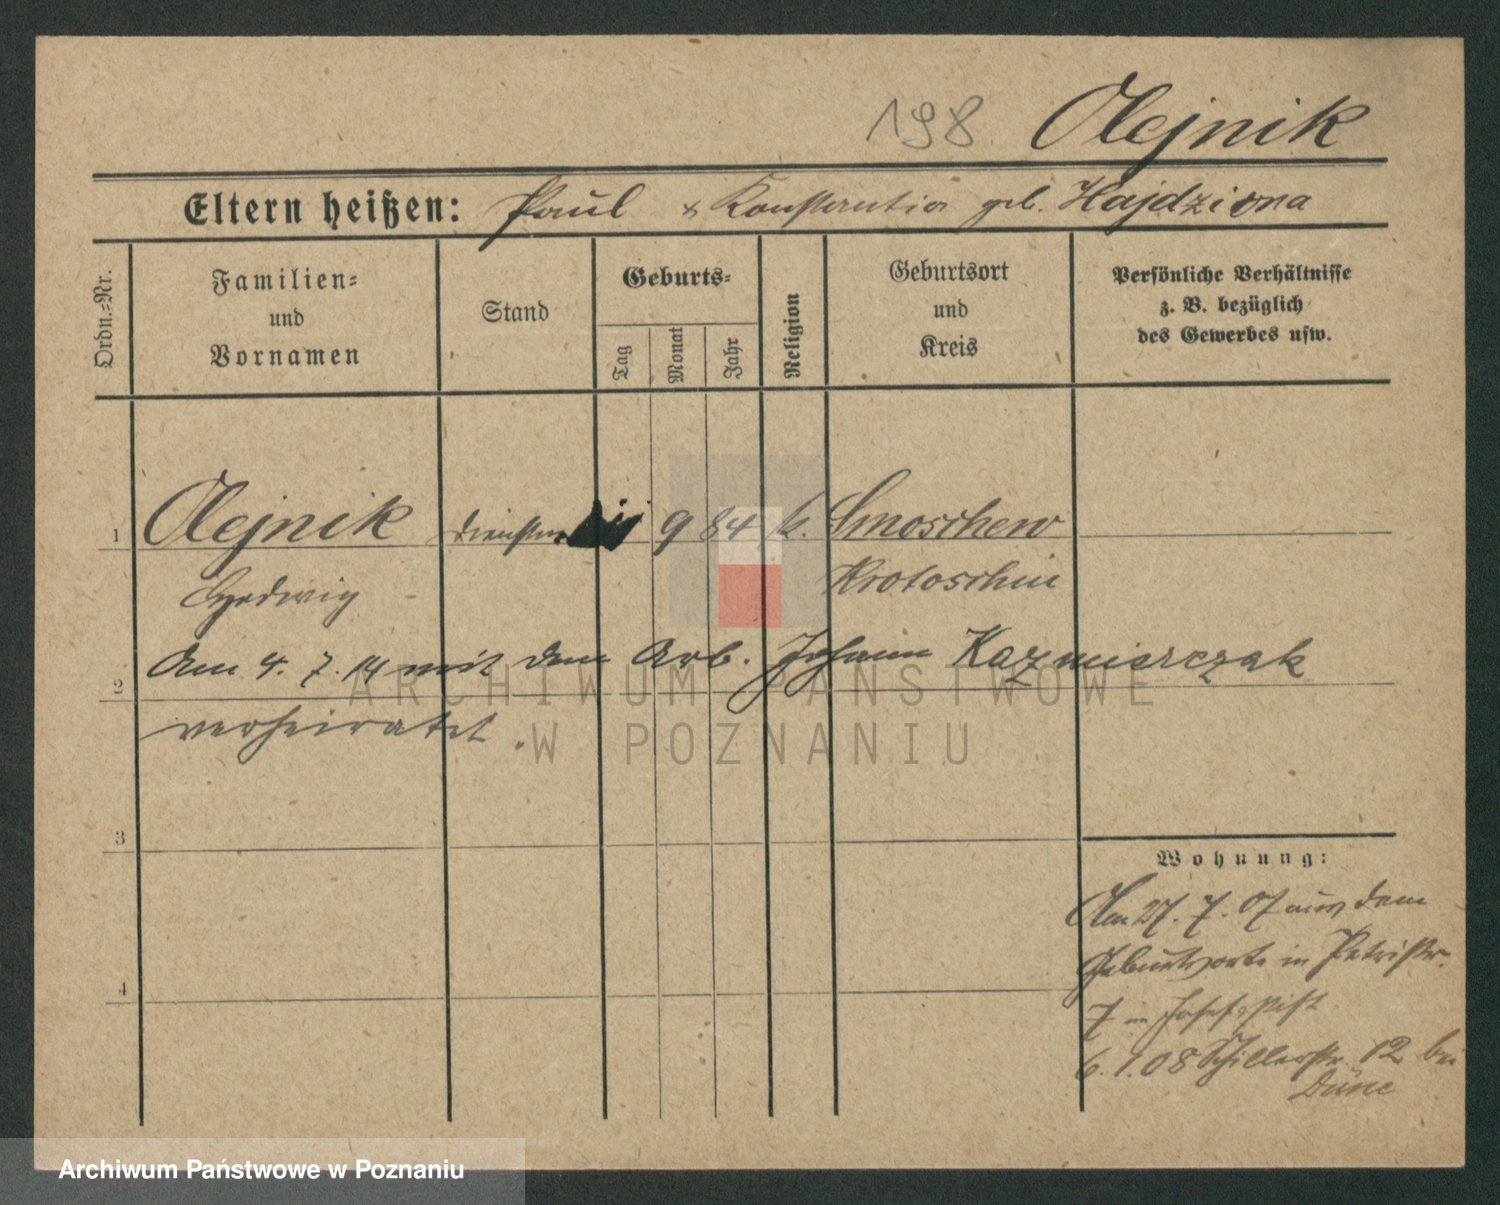 198 Olejnik
Eltern heißen: Paul & Konstantia geb. Hajdziona
Ordn.-Nr.
Familien-
und
Vornamen
Stand
Geburts-
Tag
Monat
Jahr
Religion
Geburtsort
und
Kreis
Persönliche Verhältnisse
z. B. bezüglich
des Gewerbes usw.
1 Olejnik 9 84 k. Smoschew
Hedwig Krotoschin
Am 4. 7. 14 mit dem Arb. Johann Kazmierczak
2
verheiratet.
ARCHIWUM PAŃSTWOWE
W POZNANIU
3
Wohnung:
Am 27. 7. 07 aus dem
Geburtsorte in Petristr.
4
7 im Josefsstift
6. 1. 08 Schillerstr. 12 bei
Düne
Archiwum Państwowe w Poznaniu